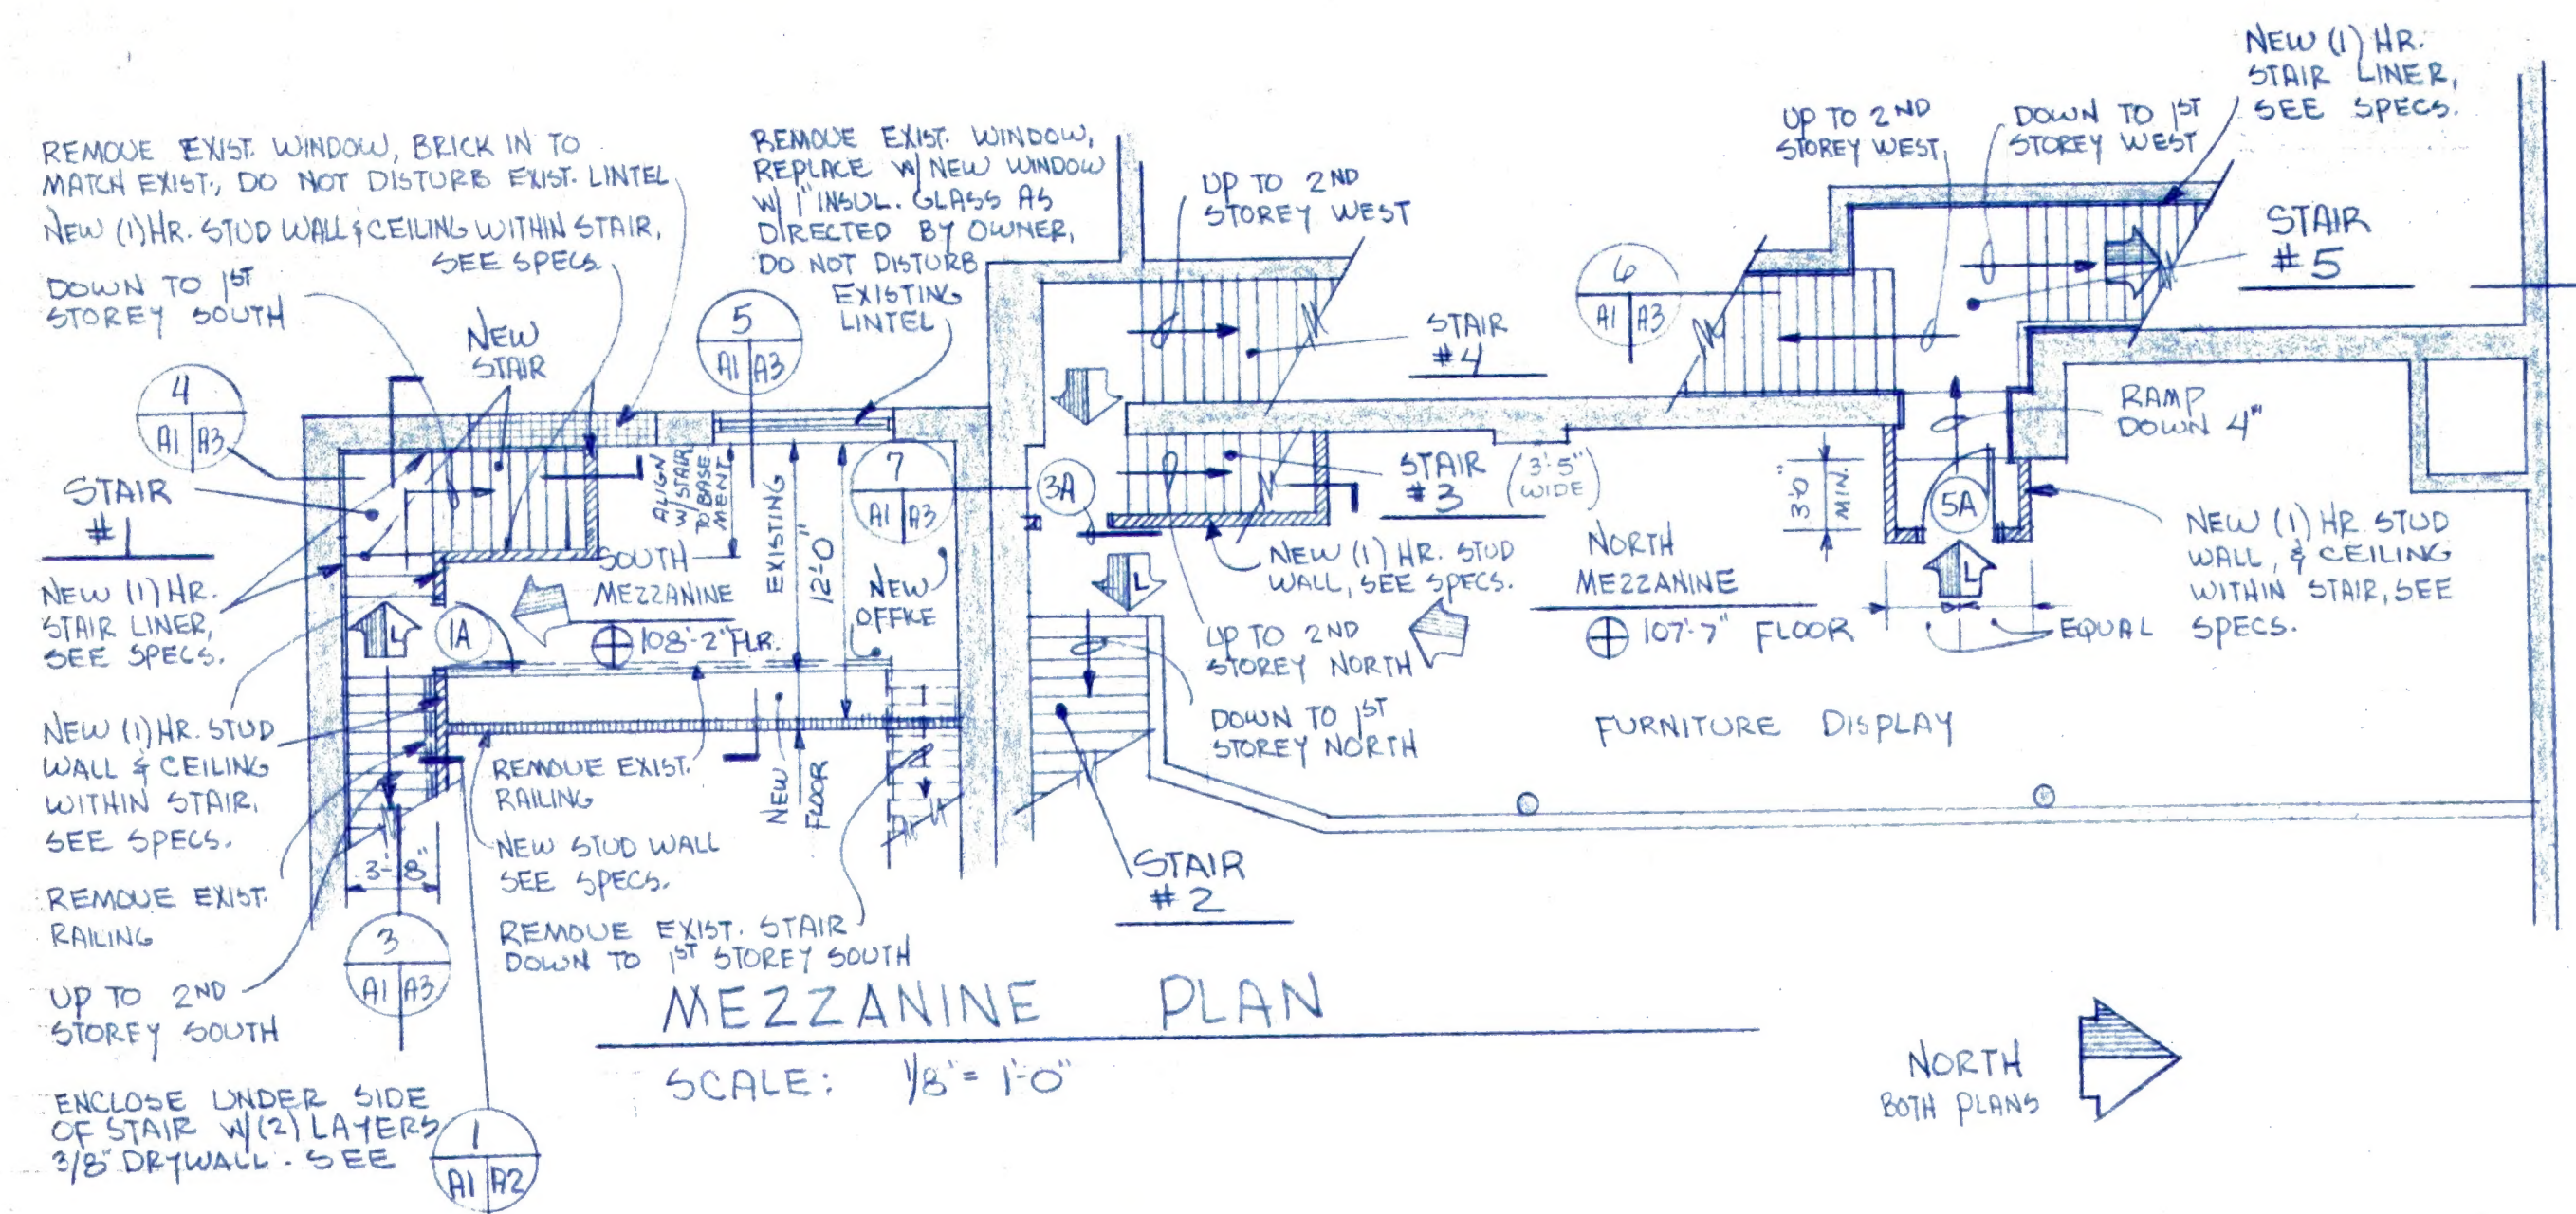 REMOVE EXIST. WINDOW, BRICK IN TO
MATCH EXIST., DO NOT DISTURB EXIST. LINTEL
NEW (1) HR. STUD WALL & CEILING WITHIN STAIR,
SEE SPECS.
DOWN TO 1ST
STOREY SOUTH
NEW
STAIR
4
A1 A3
STAIR
#1
NEW (1) HR.
STAIR LINER,
SEE SPECS.
NEW (1) HR. STUD
WALL & CEILING
WITHIN STAIR.
SEE SPECS.
REMOVE EXIST.
RAILING
UP TO 2ND
STOREY SOUTH
ENCLOSE UNDER SIDE
OF STAIR W/(2) LAYERS
3/8" DRYWALL. SEE
1
A1 A2
3
A1 A3
3'-8"
L
1A
REMOVE EXIST. WINDOW,
REPLACE W/ NEW WINDOW
W/ 1" INSUL. GLASS AS
DIRECTED BY OWNER,
DO NOT DISTURB
EXISTING
LINTEL
5
A1 A3
ALIGN
W/ STAIR
TO BASE-
MENT
EXISTING
12'-0"
7
A1 A3
SOUTH
MEZZANINE
108'-2" FLR.
NEW
OFFICE
REMOVE EXIST.
RAILING
NEW
FLOOR
NEW STUD WALL
SEE SPECS.
REMOVE EXIST. STAIR
DOWN TO 1ST STOREY SOUTH
UP TO 2ND
STOREY WEST
STAIR
#4
3A
STAIR
#3
(3'-5"
WIDE)
L
NEW (1) HR. STUD
WALL, SEE SPECS.
UP TO 2ND
STOREY NORTH
DOWN TO 1ST
STOREY NORTH
STAIR
#2
NORTH
MEZZANINE
107'-7" FLOOR
FURNITURE DISPLAY
6
A1 A3
UP TO 2ND
STOREY WEST
DOWN TO 1ST
STOREY WEST
NEW (1) HR.
STAIR LINER,
SEE SPECS.
STAIR
#5
RAMP
DOWN 4"
3'-0"
MIN.
5A
L
EQUAL
NEW (1) HR. STUD
WALL, & CEILING
WITHIN STAIR, SEE
SPECS.
MEZZANINE PLAN
SCALE: 1/8" = 1'-0"
NORTH
BOTH PLANS